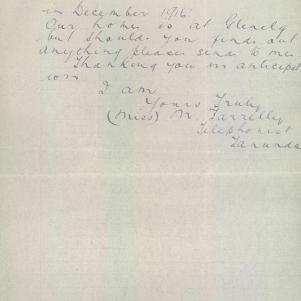 in December 1916.
Our home is at Glenelg
but should you find out
anything please send to me.
Thanking you in anticipat
ion
I am
Yours Truly
(Miss) M. Farrelly
Telephonist
Tanunda